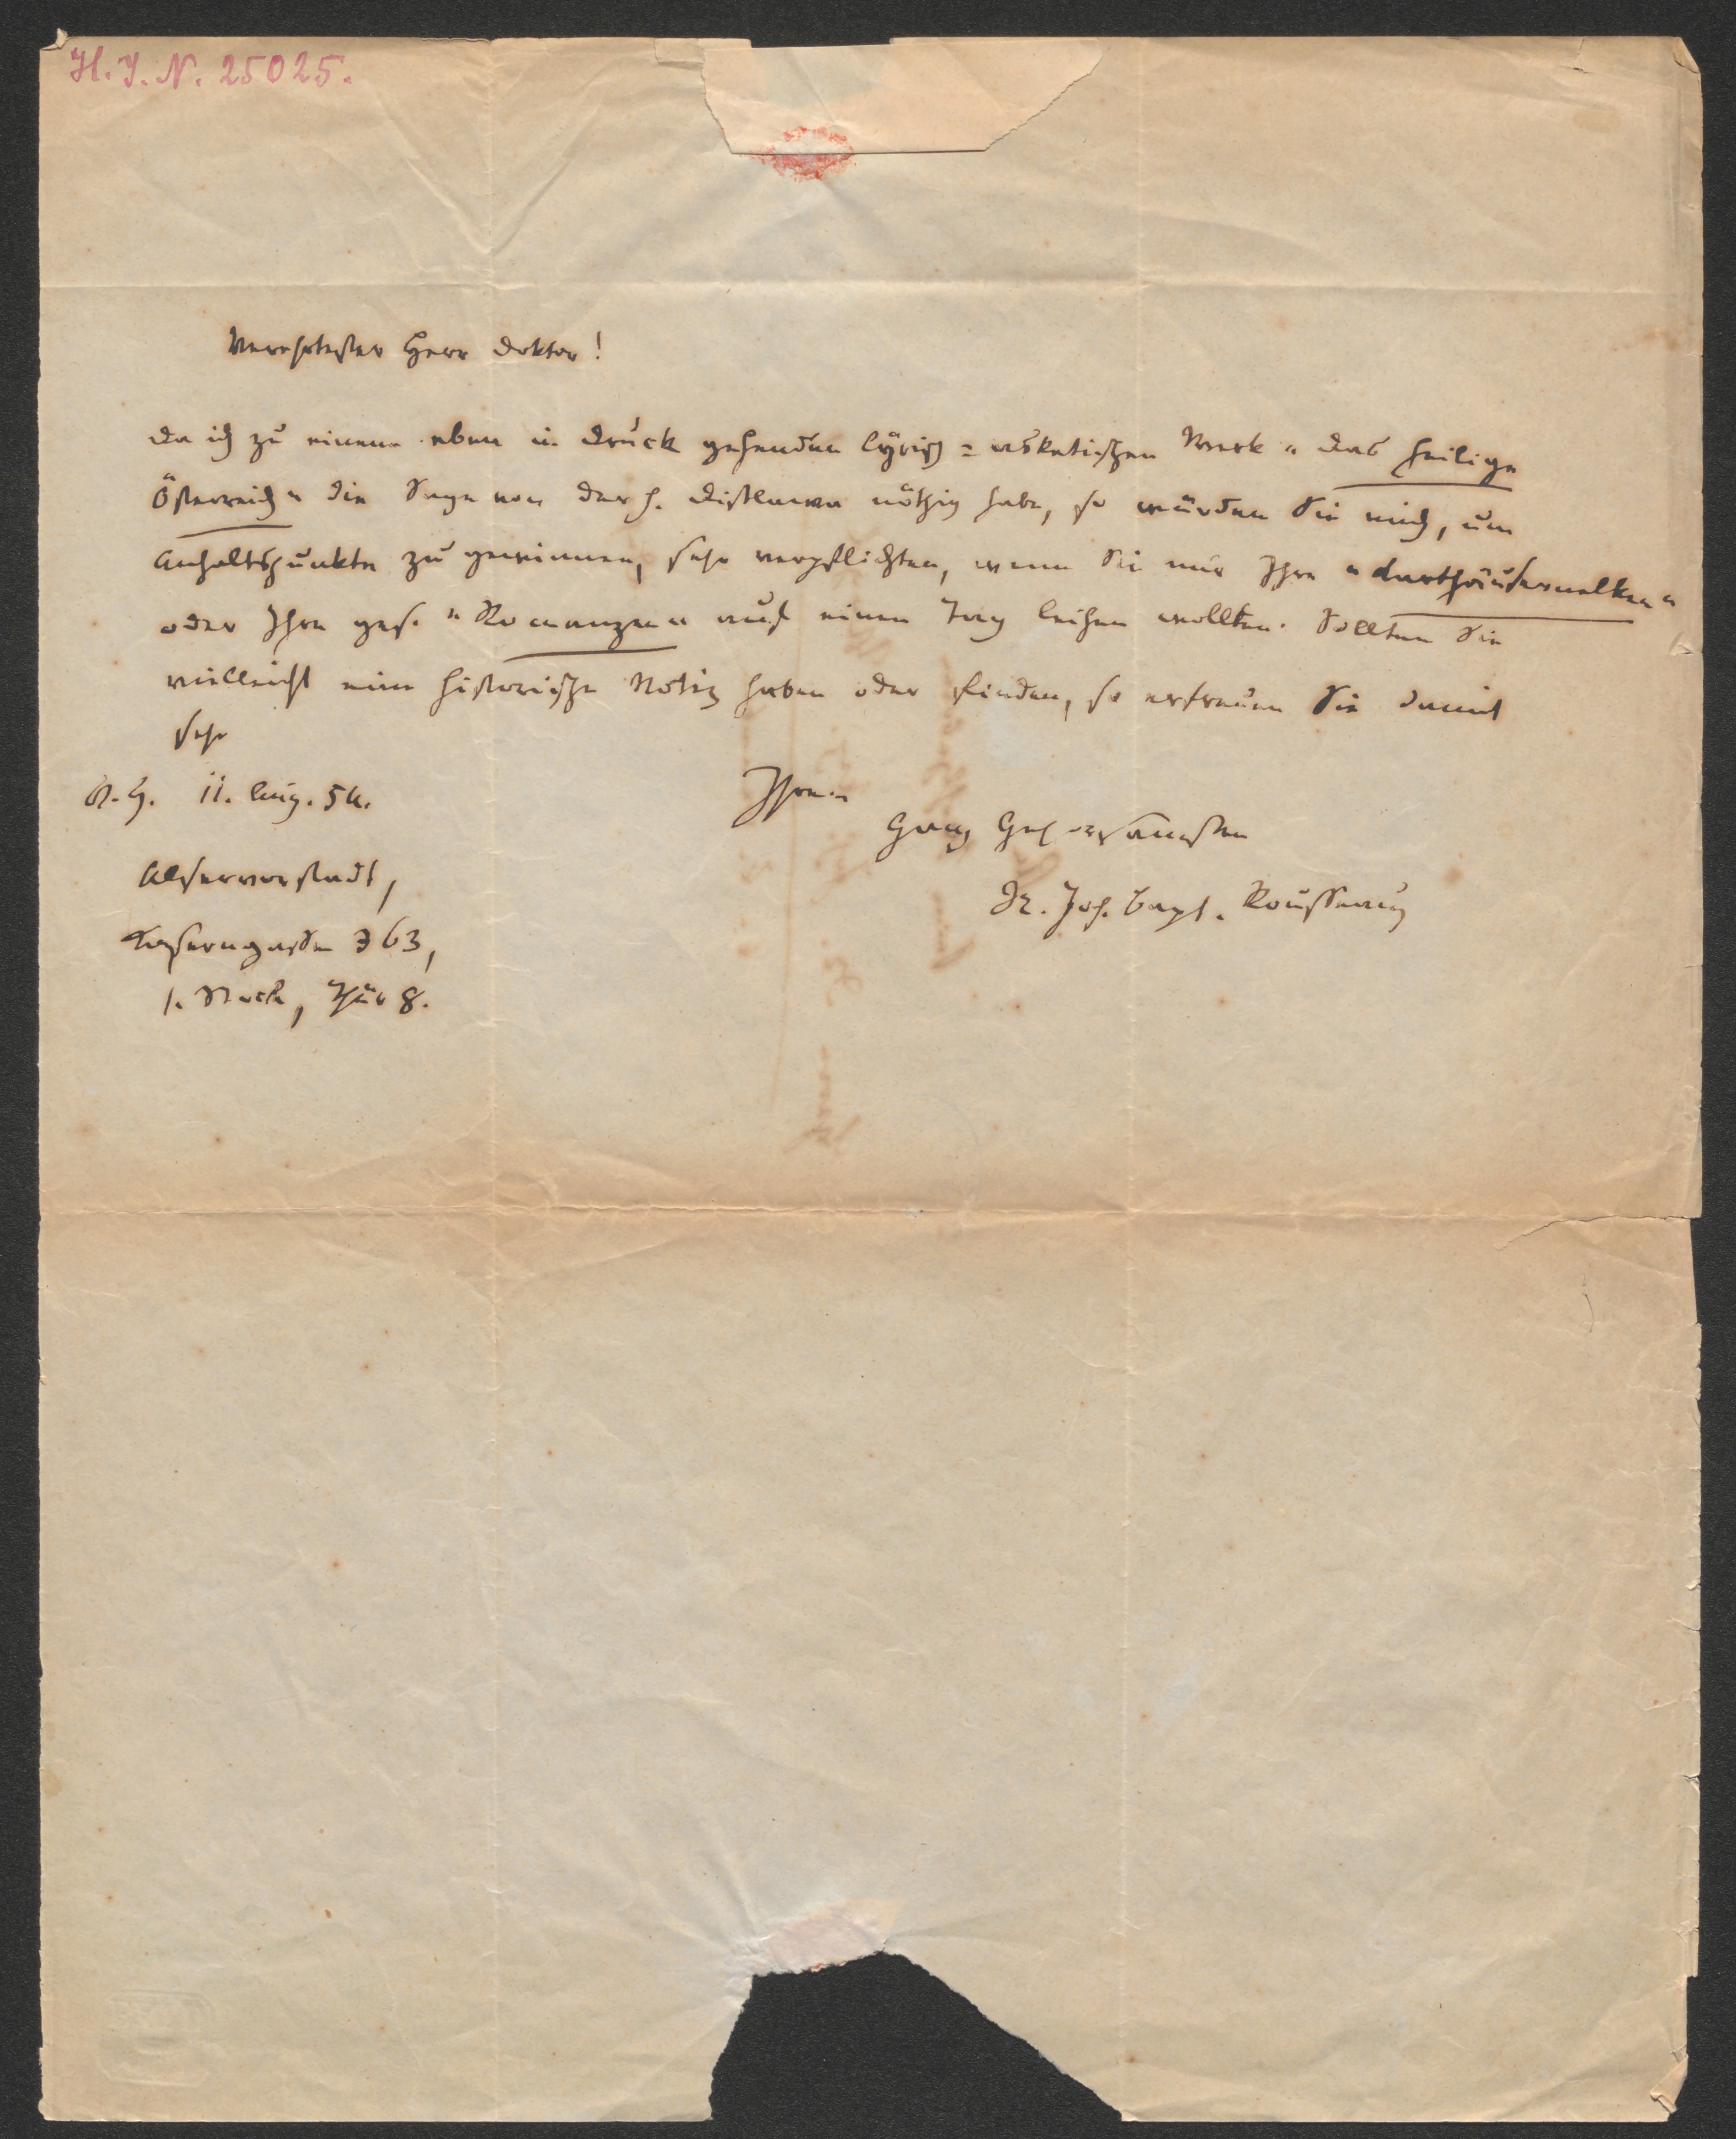 H. I. N. 25025.
Verehrtester Herr Doktor!
Da ich zu einem eben in Druck gehenden lyrisch=asketischen Werk "Das heilige
Österreich" die Sage von der h. nöthig habe, so würden Sie mich, um
Anhaltspunkte zu gewinnen, sehr verpflichten, wenn Sie mir Ihre "Karthäusernelken"
oder Ihre ges. "Romanzen" auf einen Tag leihen wollten. Sollten Sie
vielleicht eine historische Notiz haben oder finden, so erfreuen Sie damit
sehr
11. Aug. 54.
Ihren
Ganz Gehorsamsten
Alservorstadt,
Dr. Joh. Bapt. Rousseau
363,
1. Stock, Thür 8.